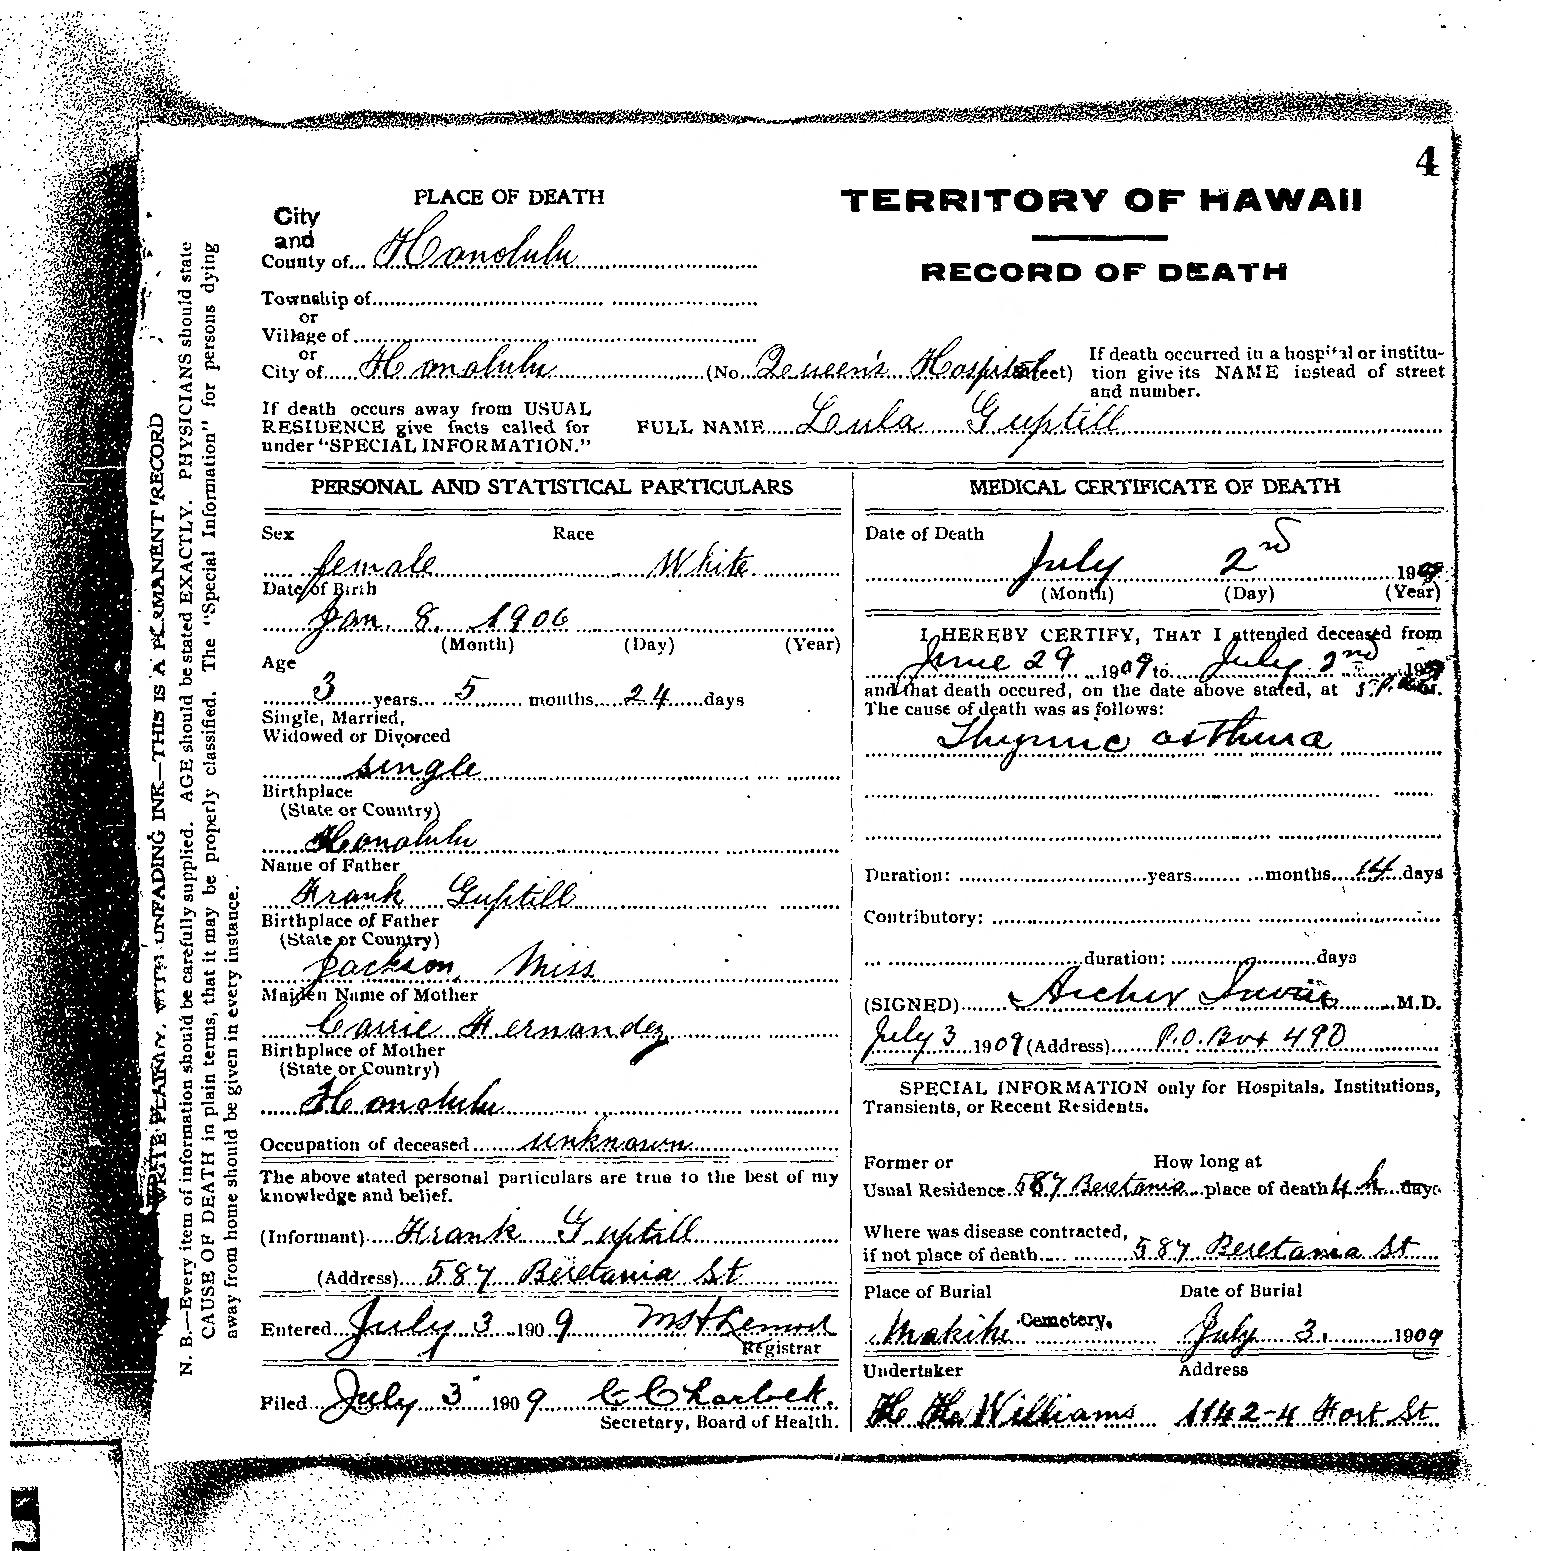 4
PLACE OF DEATH
TERRITORY OF HAWAII
RECORD OF DEATH
City
and
County of Honolulu
Township of
or
Village of
or
City of Honolulu (No. Queen's Hospital
If death occurred in a hospital or institu-
tion give its NAME instead of street
and number.
If death occurs away from USUAL
RESIDENCE give facts called for
under "SPECIAL INFORMATION."
FULL NAME Lula Guptill
PERSONAL AND STATISTICAL PARTICULARS
Sex Race
female White
Date of Birth
Jan. 8. 1906
(Month) (Day) (Year)
Age
3 years 5 months 24 days
Single, Married,
Widowed or Divorced
single
Birthplace
(State or Country)
Honolulu
Name of Father
Frank Guptill
Birthplace of Father
(State or Country)
Jackson, Miss
Maiden Name of Mother
Carrie Hernandez
Birthplace of Mother
(State or Country)
Honolulu
Occupation of deceased unknown
The above stated personal particulars are true to the best of my
knowledge and belief.
(Informant) Frank Guptill
(Address) 587 Beretania St
Entered July 3 1909
Registrar
Filed July 3 1909
Secretary, Board of Health.
MEDICAL CERTIFICATE OF DEATH
Date of Death
July 2nd 1909
(Month) (Day) (Year)
I HEREBY CERTIFY, THAT I attended deceased from
June 29 1909 to July 2nd 1909
and that death occured, on the date above stated, at
The cause of death was as follows:
Thymic asthma
Duration: years months 14 days
Contributory:
duration: days
(SIGNED) Archer Irwin M.D.
July 3 1909 (Address) P.O. Box 490
SPECIAL INFORMATION only for Hospitals, Institutions,
Transients, or Recent Residents.
Former or How long at
Usual Residence 587 Beretania place of death 4 h days
Where was disease contracted,
if not place of death 587 Beretania St
Place of Burial Date of Burial
Makiki Cemetery. July 3. 1909
Undertaker Address
Williams 1142-4 Fort St
WRITE PLAINLY, WITH UNFADING INK—THIS IS A PERMANENT RECORD
N. B.—Every item of information should be carefully supplied. AGE should be stated EXACTLY. PHYSICIANS should state
CAUSE OF DEATH in plain terms, that it may be properly classified. The "Special Information" for persons dying
away from home should be given in every instance.